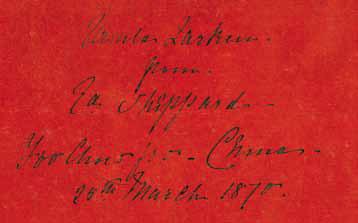 Larken.
from.
Sheppard -
Foo Chow foo - China -
20th March 1870.